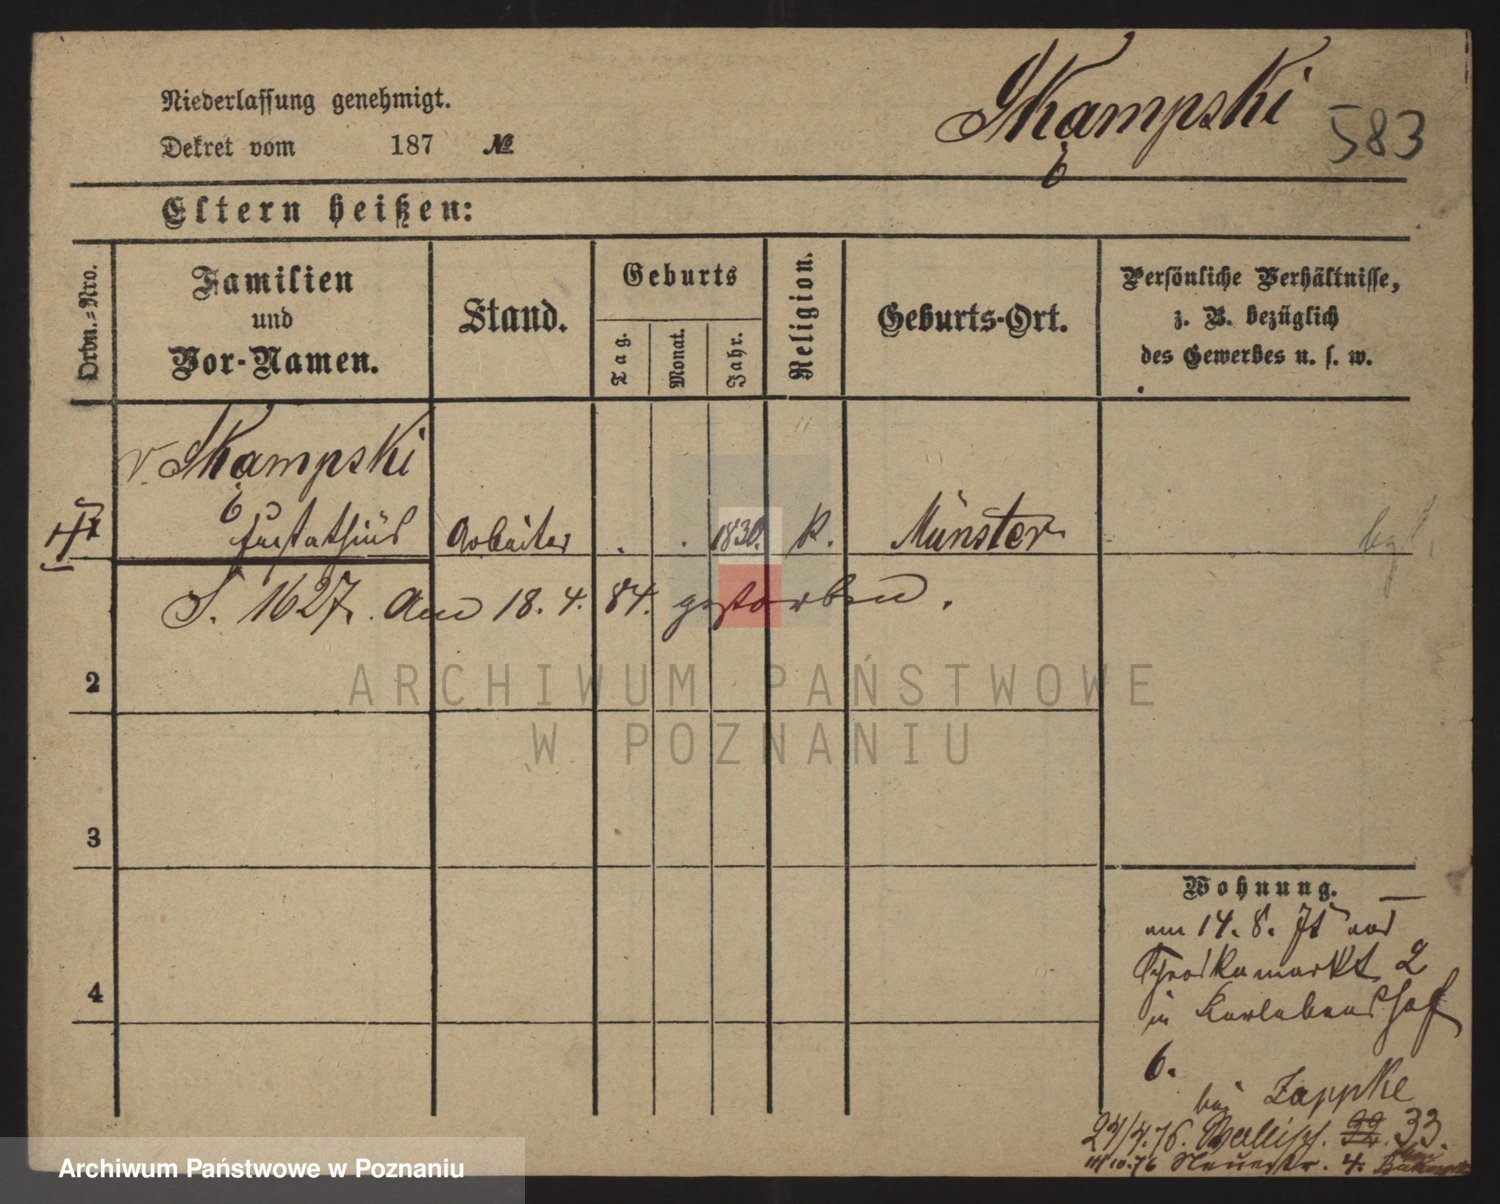 Niederlassung genehmigt.
Dekret vom 187 №
Skąmpski 583
Eltern heißen:
Ordn.-Nro.
Familien und Vor-Namen.
Stand.
Geburts
Tag.
Monat.
Jahr.
Religion.
Geburts-Ort.
Persönliche Verhältnisse,
z. B. bezüglich
des Gewerbes u. s. w.
v. Skąmpski
Eustathius Arbeiter . . 1830. k. Münster
S. 1627. Am 18. 4. 84. gestorben.
2
3
4
Wohnung.
am 14. 8. 75 aus
Schrodkamarkt 2
in
6.
bei Zappke
24/4. 76. Wallisch. 33.
10. 76 Neuestr. 4.
ARCHIWUM PAŃSTWOWE
W POZNANIU
Archiwum Państwowe w Poznaniu